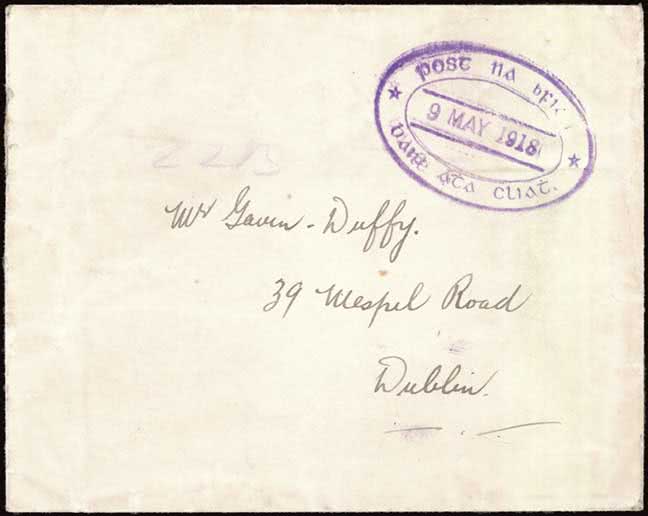 post na
9 MAY 1918
baile áta cliat.
22B
Mr Gavan-Duffy.
39 Mespel Road
Dublin.